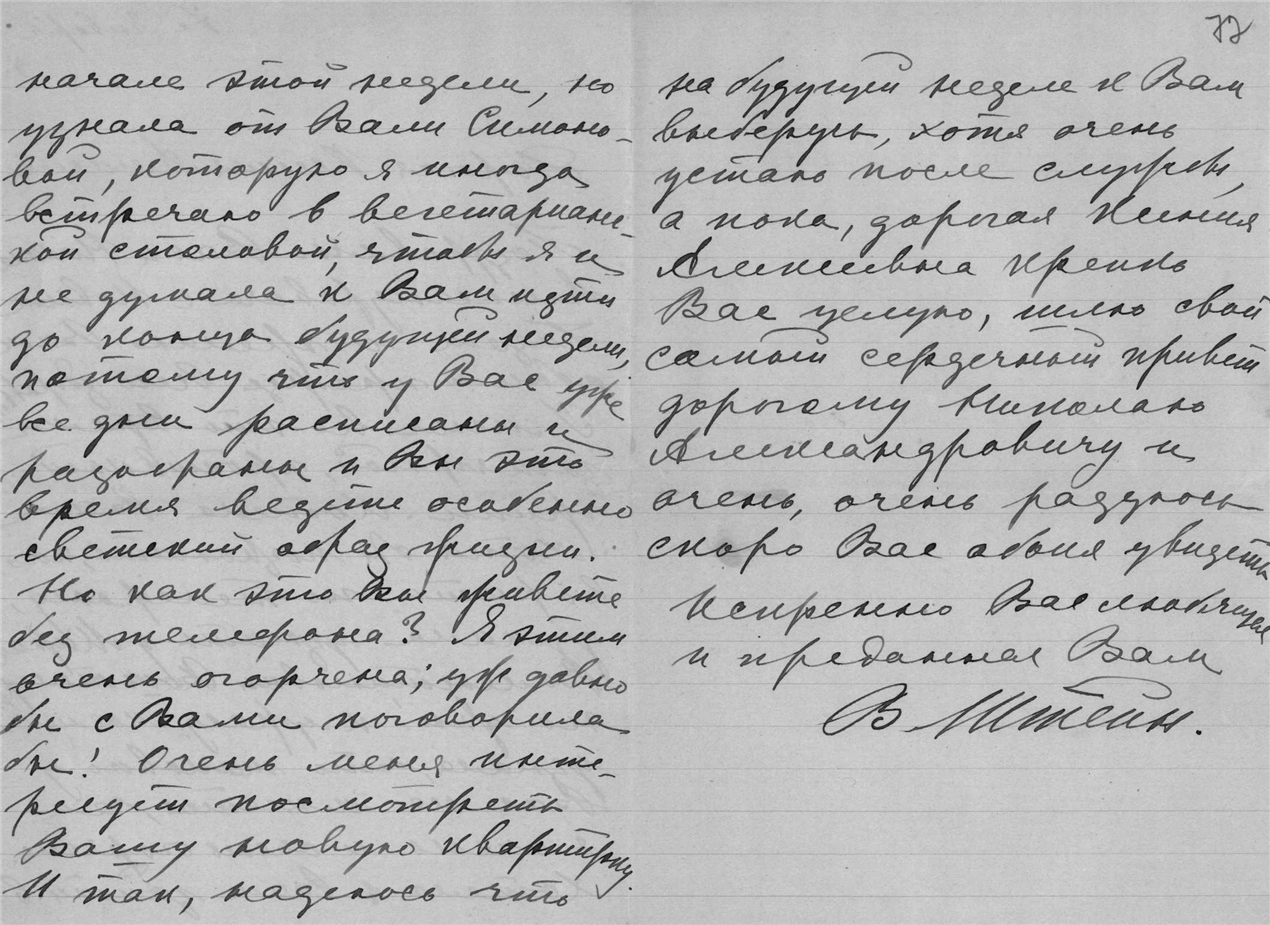 77
начале этой недели, но
узнала от Вали Симоно-
вой, которую я иногда
встречаю в вегетарианс-
кой столовой, чтобы я и
не думала к Вам идти
до конца будущей недели,
потому что у Вас уже
все дни расписаны и
разобраны и Вы это
время ведете особенно
светский образ жизни.
Но как это Вы живете
без телефона? Я этим
очень огорчена; уж давно
бы с Вами поговорила
бы! Очень меня инте-
ресует посмотреть
Вашу новую квартирку.
И так, надеюсь что
на будущей неделе к Вам
выберусь, хотя очень
устаю после службы,
а пока, дорогая Ксения
Алексеевна крепко
Вас целую, шлю свой
самый сердечный привет
дорогому Николаю
Александровичу и
очень, очень радуюсь
скоро Вас обоих увидеть
Искренно Вас любящая
и преданная Вам
В Штейн.